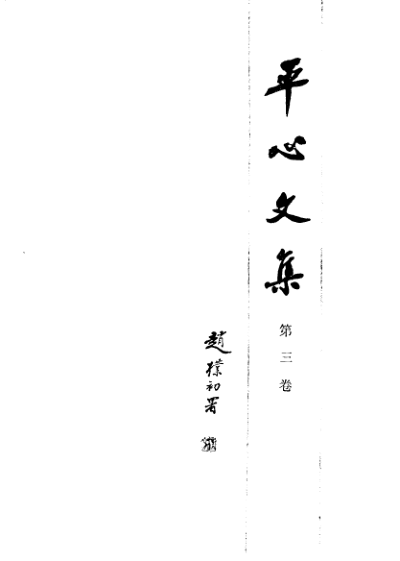 平心文集
第三卷
趙樸初署